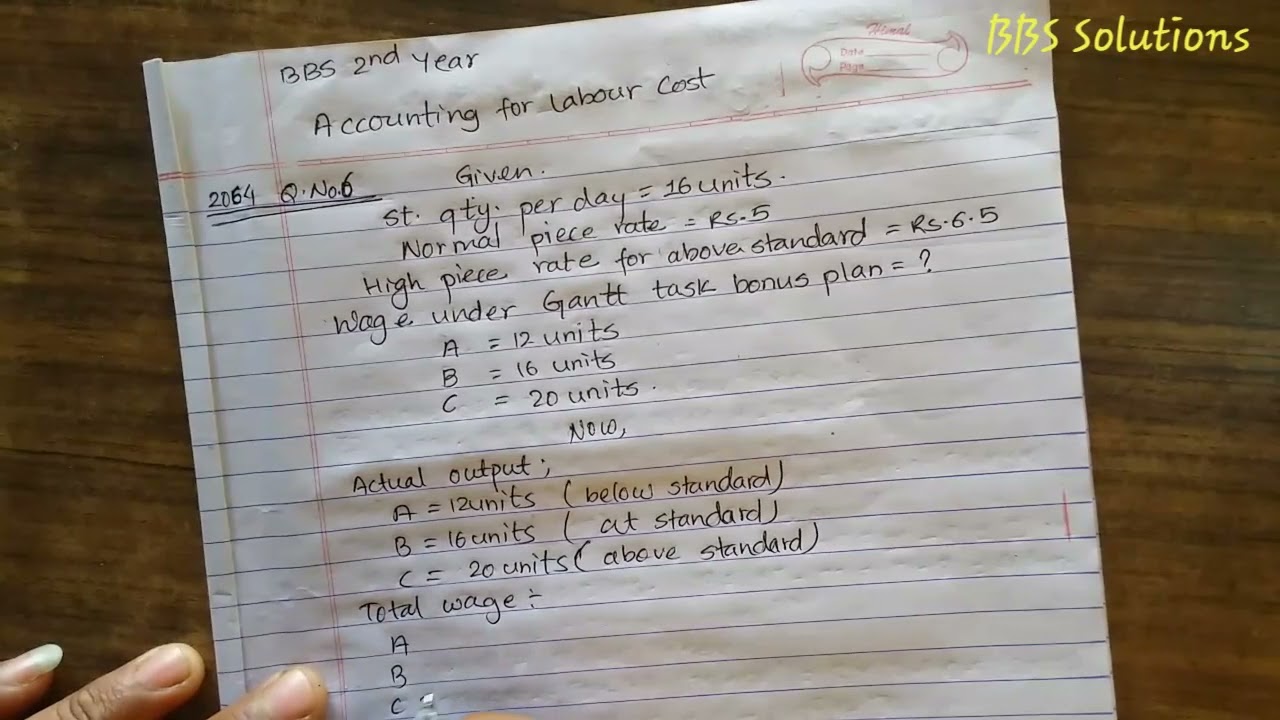 BBS Solutions
Himal
Date
Page
BBS 2nd Year
Accounting for Labour Cost
2064 Q.No.6
Given.
St. qty. per day = 16 units.
Normal piece rate = Rs.5
High piece rate for above standard = Rs.6.5
Wage under Gantt task bonus plan = ?
A = 12 units
B = 16 units
C = 20 units.
Now,
Actual output;
A = 12 units (below standard)
B = 16 units (at standard)
C = 20 units (above standard)
Total wage :-
A
B
C